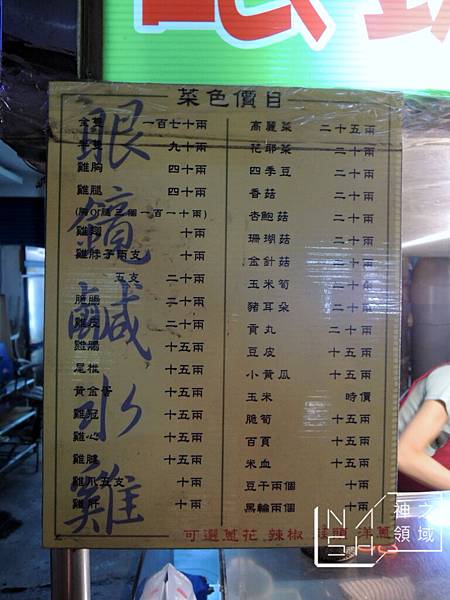 菜色價目
全隻 一百七十兩
半隻 九十兩
雞胸 四十兩
雞腿 四十兩
(胸or腿三個一百一十兩)
雞翅 十兩
雞脖子兩支 十兩
五支 二十兩
脆腸 二十兩
雞皮 二十兩
雞腸 十五兩
尾椎 十五兩
黃金蛋 十五兩
雞冠 十五兩
雞心 十五兩
雞腱 十五兩
雞爪五支 十兩
雞肝 十兩
眼鏡鹹水雞
高麗菜 二十五兩
花椰菜 二十兩
四季豆 二十兩
香菇 二十兩
杏鮑菇 二十兩
珊瑚菇 二十兩
金針菇 二十兩
玉米筍 二十兩
豬耳朵 二十兩
貢丸 二十兩
豆皮 十五兩
小黃瓜 十五兩
玉米 時價
脆筍 十五兩
百頁 十五兩
米血 十五兩
豆干兩個 十兩
黑輪兩個 十兩
可選蔥花 辣椒 蒜頭 洋蔥
神之領域